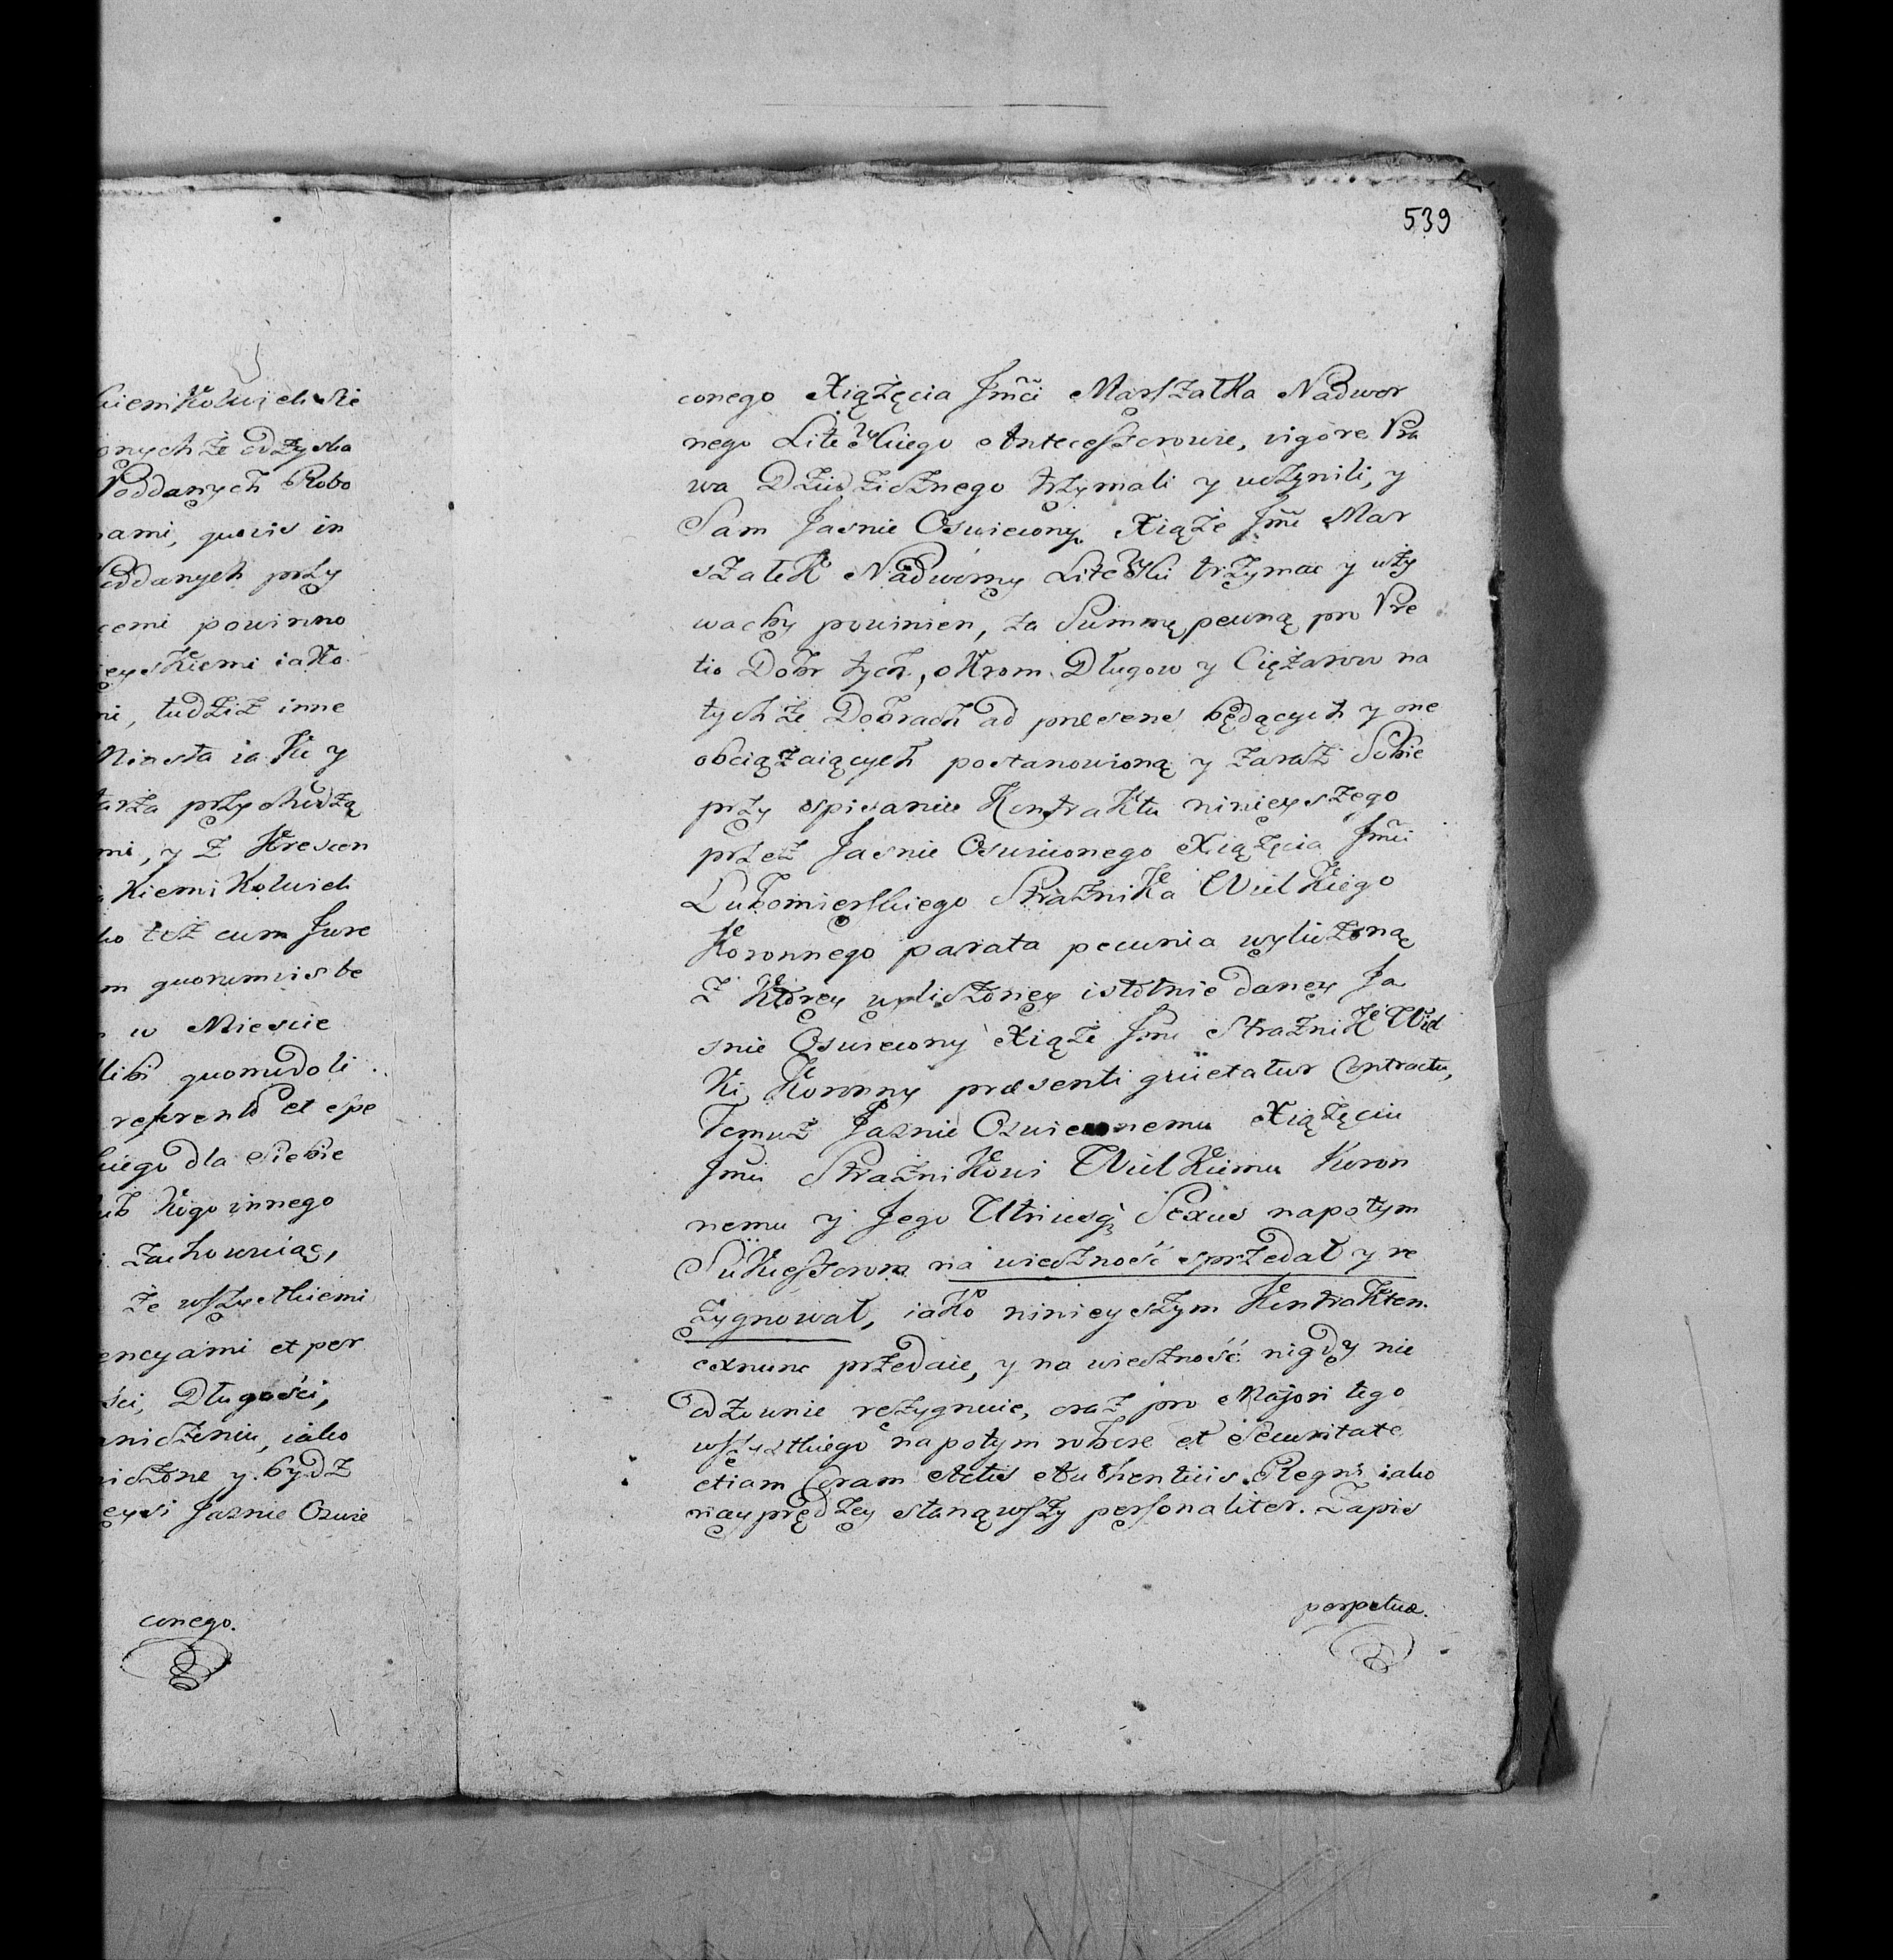 kiemikolwiek Re
onychże odzyska
Poddanych Robo
ami, quovis in
Poddanych przy
cemi powinno
eyskiemi iako
ni, tudzież inne
Miasta iako y
tarza przychodzą
mi, y z Krescen
kiemikolwiek
ko też cum Jure
m quorumvis be
w Miescie
libi quomodoli
referendo et spe
kiego dla siebie
ub kogo innego
zachowuiąc,
że wszystkiemi
encyami et per
ści, Długości,
aniczeniu, iako
iczone y bydz
eysi Jasnie Oswie
conego.
539
conego Xiążęcia Jmci Marszałka Nadwor
nego Litewskiego Antecessorowie, vigore Pra
wa Dziedzicznego trzymali y uczynili, y
Sam Jasnie Oswiecony Xiąże Jmć Mar
szałek Nadworny Litewski trzymac y uży
wacby powinien, za Summę pewną pro Pre
tio Dobr tych, okrom Długow y Ciężarow na
tychże Dobrach ad præsens będących y one
obciążaiących postanowioną y zaraz Sobie
przy spisaniu Kontraktu ninieyszego
przez Jasnie Oswieconego Xiążęcia Jmci
Lubomierskiego Strażnika Wielkiego
Koronnego parata pecunia wyliczoną
z ktorey wyliczoney istotnie daney Ja
snie Oswiecony Xiąże Jmć Strażnik Wiel
ki Koronny præsenti quietatur Contractu,
Temuż Jasnie Oswieconemu Xiążęciu
Jmci Strażnikowi Wielkiemu Koron
nemu y Jego Utriusq; Sexus napotym
Sukcessorom na wieczność sprzedał y re
zygnował, iako ninieyszym Kontraktem
exnunc przedaie, y na wieczność nigdy nie
odzownie rezygnuie, oraz pro Majori tego
wszystkiego napotym robore et Securitate
etiam Coram Actis Authenticis Regni iako
nayprędzey stanąwszy personaliter. Zapis
perpetuæ.